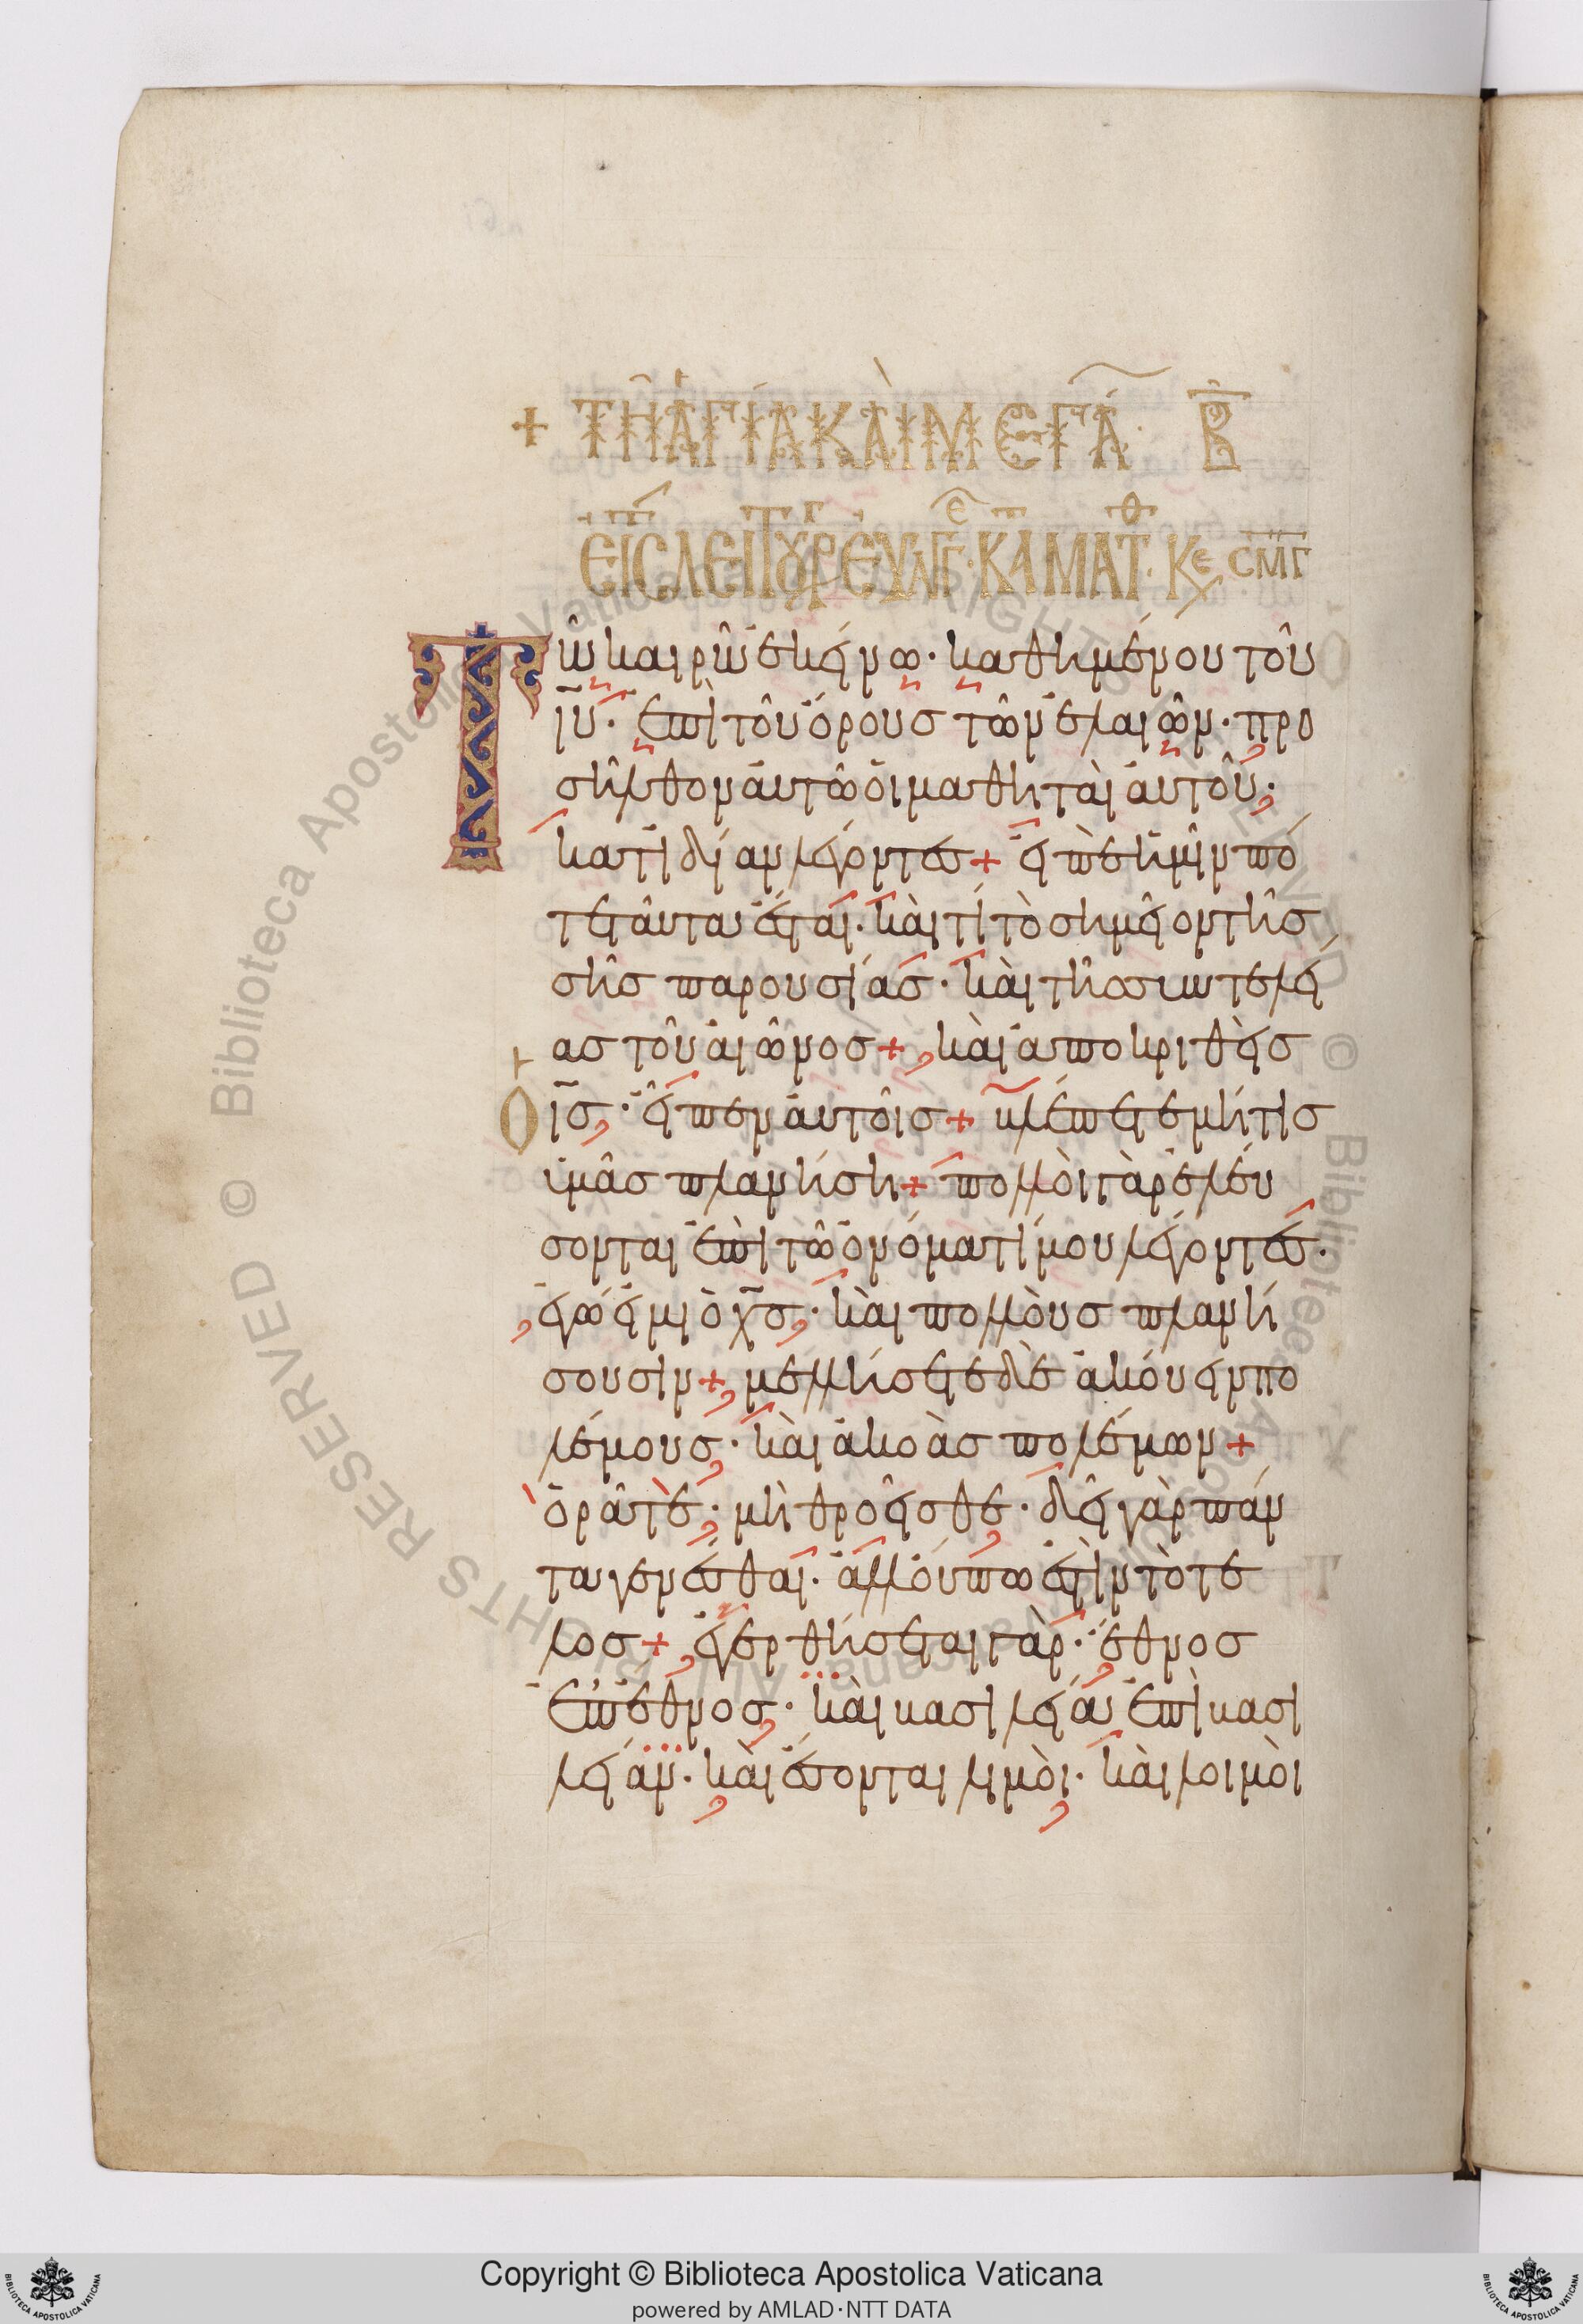 + ΤΗ ἉΓΊΑ ΚΑῚ ΜΕΓΆ Β
ΕΙΣ ΛΕΙΤΟΥΡ ΕΥΑΓΓΕ· Κ̅Α̅ ΜΑΤΘ· ΚΕ ΣΜΓ
Τῶ καιρῶ ἐκείνω· καθημένου τοῦ
ἰ̅υ̅· ἐπὶ τοῦ ὄρους τῶν ἐλαιῶν· προ
σῆλθον ἀυτῶ ὁι μαθηταὶ ἀυτοῦ·
κατιδίαν λέγοντες + εἰπὲ ἡμῖν πό
τε ταῦτα ἔσται· καὶ τί τὸ σημεῖον τῆς
σῆς παρουσίας· καὶ τῆς συντελεί
ας τοῦ αἰῶνος + καὶ ἀποκριθεὶς
Ὁ ἰ̅ς̅· εἶπεν ἀυτοῖς + βλέπετε μήτις
ὑμᾶς πλανήση + πολλοὶ γὰρ ἐλέυ
σονται ἐπὶ τῶ ὀνόματί μου λέγοντες·
ἐγώ εἰμι ὁ χ̅ς̅· καὶ πολλοὺς πλανή
σουσιν + μελλήσετε δὲ ἀκούειν πο
λέμους· καὶ ἀκοὰς πολέμων +
ὁρᾶτε· μὴ θροεῖσθε· δεῖ γὰρ πάν
τα γενέσθαι· ἀλλ όυπω ἐστὶν τὸ τέ
λος + ἐγερθήσεται γὰρ· ἔθνος
ἐπ ἔθνος· καὶ βασιλεία ἐπὶ βασι
λείαν· καὶ ἔσονται λιμοὶ· καὶ λοιμοὶ
Copyright © Biblioteca Apostolica Vaticana
powered by AMLAD·NTT DATA